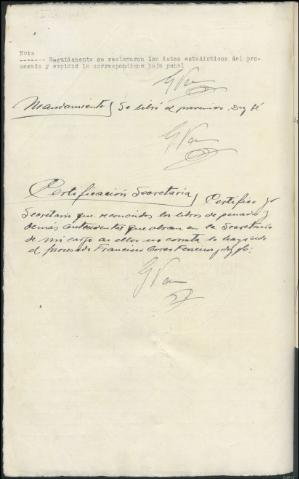 Nota
------- Seguidamente se reclamaron los datos estadisticos del pro-
cesado y expidió la correspondiente hoja penal
Mandamiento / Se libró el prevenido. Doy fé
Certificación Secretaria / Certifico yo
Secretario que reconocidos los libros de penados y
demas antecedentes que obran en la Secretaria
de mi cargo en ellos no consta lo haya sido
el procesado Francisco doy fé.